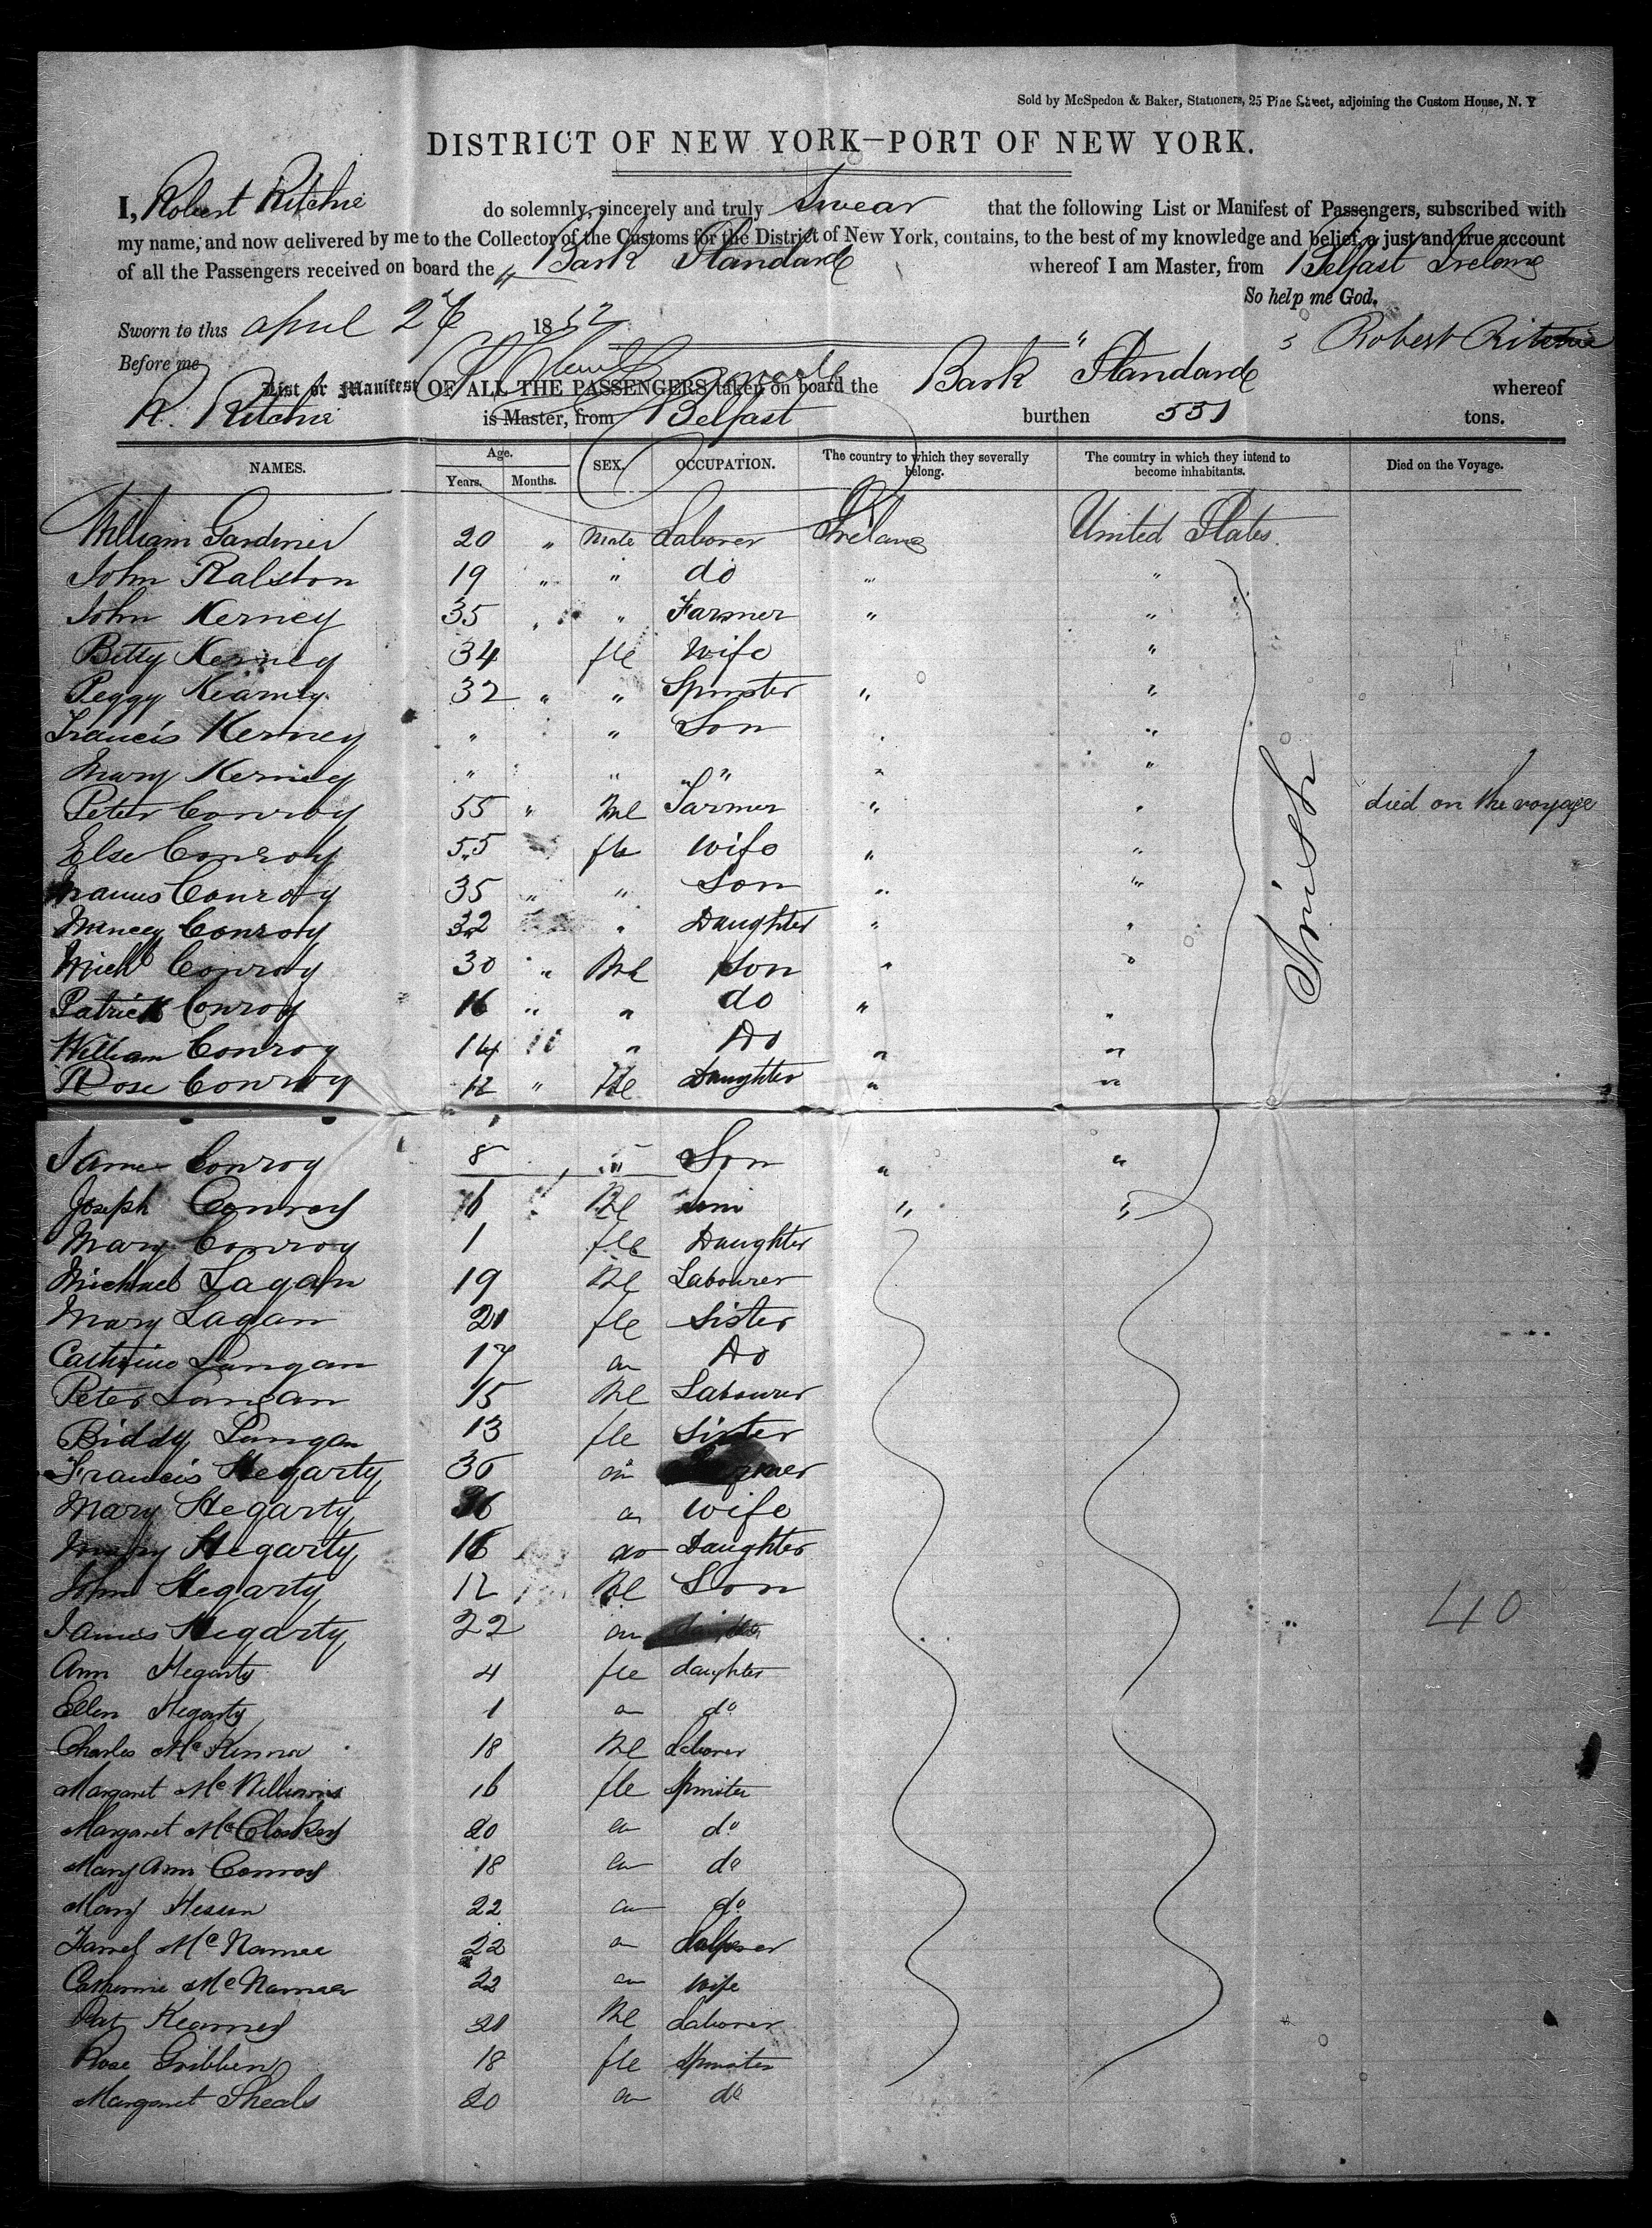 Sold by McSpedon & Baker, Stationers, 25 Pine Street, adjoining the Custom House, N. Y
DISTRICT OF NEW YORK—PORT OF NEW YORK.
I, Robert Ritchie do solemnly, sincerely and truly Swear that the following List or Manifest of Passengers, subscribed with
my name, and now delivered by me to the Collector of the Customs for the District of New York, contains, to the best of my knowledge and belief, a just and true account
of all the Passengers received on board the Bark Standard whereof I am Master, from Belfast Ireland
So help me God.
Sworn to this April 1852 Robert Ritchie
Before me
List or Manifest OF ALL THE PASSENGERS taken on board the Bark Standard whereof
R. Ritchie is Master, from Belfast burthen 531 tons.
NAMES. Age. Years. Months. SEX. OCCUPATION. The country to which they severally belong. The country in which they intend to become inhabitants. Died on the Voyage.
William Gardiner 20 " Male Laborer Ireland United States.
John Ralston 19 " " do " "
John Kerney 35 " " Farmer " "
Betty Kerney 34 fle Wife "
Peggy Kearney 32 " " Spinster " "
Francis Kerney " " Son " "
Mary Kerney " " " " "
Peter Conroy 55 " Ml Farmer " " died on the voyage
Else Conroy 55 fle Wife " "
Conroy 35 " " Son " "
Nancy Conroy 32 " Daughter " "
Michl Conroy 30 " Ml Son " "
Patrick Conroy 16 " " do " "
William Conroy 14 " " Do " "
Rose Conroy 12 " fle Daughter " "
James Conroy 8 " Son " "
Joseph Conroy 6 Ml Son " "
Mary Conroy 1 fle Daughter
Michael Lagan 19 Ml Labourer
Mary Lagan 21 fle Sister
Langan 17 " Do
Peter Langan 15 Ml Labourer
Biddy Langan 13 fle Sister
Francis Hegarty 36 "
Mary Hegarty 36 " Wife
Mary Hegarty 16 do Daughter
John Hegarty 12 Ml Son
James Hegarty 22 "
Ann Hegarty 4 fle daughter
Ellen Hegarty 1 " do
Charles McKenna 18 Ml Laborer
Margaret McWilliams 16 fle Spinster
Margaret McCloskey 20 " do
Mary Ann Conroy 18 " do
Mary 22 " do
McNamee 22 " Laborer
Catherine McNamee 22 " Wife
Pat Kearney 21 Ml Laborer
Rose Gribben 18 fle Spinster
Margaret Sheals 20 " do
40